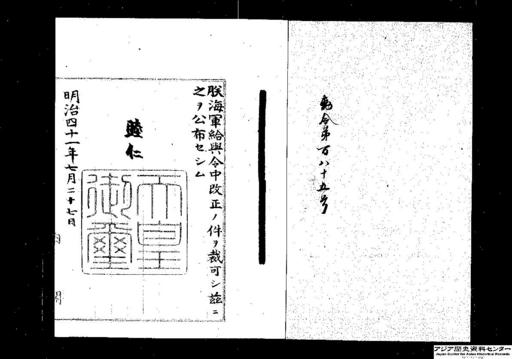 勅令第百八十五号
朕海軍給與令中改正ノ件ヲ裁可シ茲ニ
之ヲ公布セシム
睦仁
天皇御璽
明治四十一年七月二十七日
内閣
アジア歴史資料センター
Japan Center for Asian Historical Records